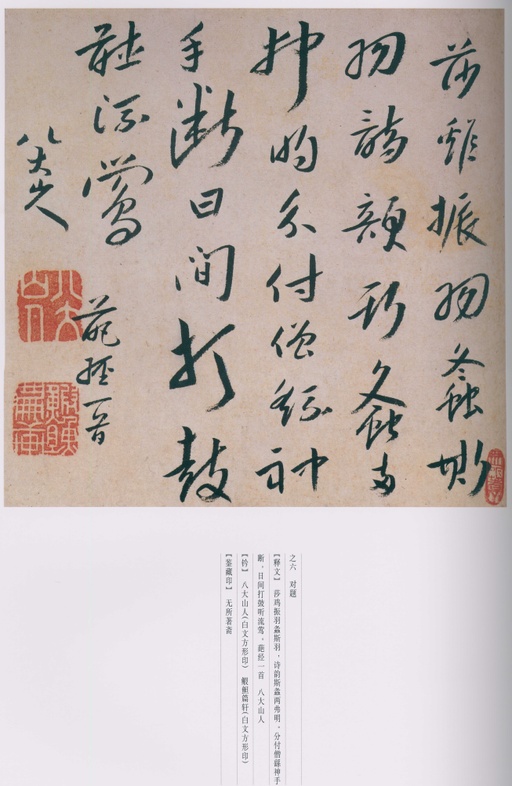 莎雞振羽螽斯
羽詩韻斯螽兩
弗明分付僧繇神
手斷日間打鼓
聽流鶯
葩經一首
八大山人
之六 对题
【释文】 莎鸡振羽螽斯羽，诗韵斯螽两弗明。分付僧繇神手
断，日间打鼓听流莺。葩经一首 八大山人
【钤】 八大山人（白文方形印） 鰕䱇篇轩（白文方形印）
【鉴藏印】 无所著斋